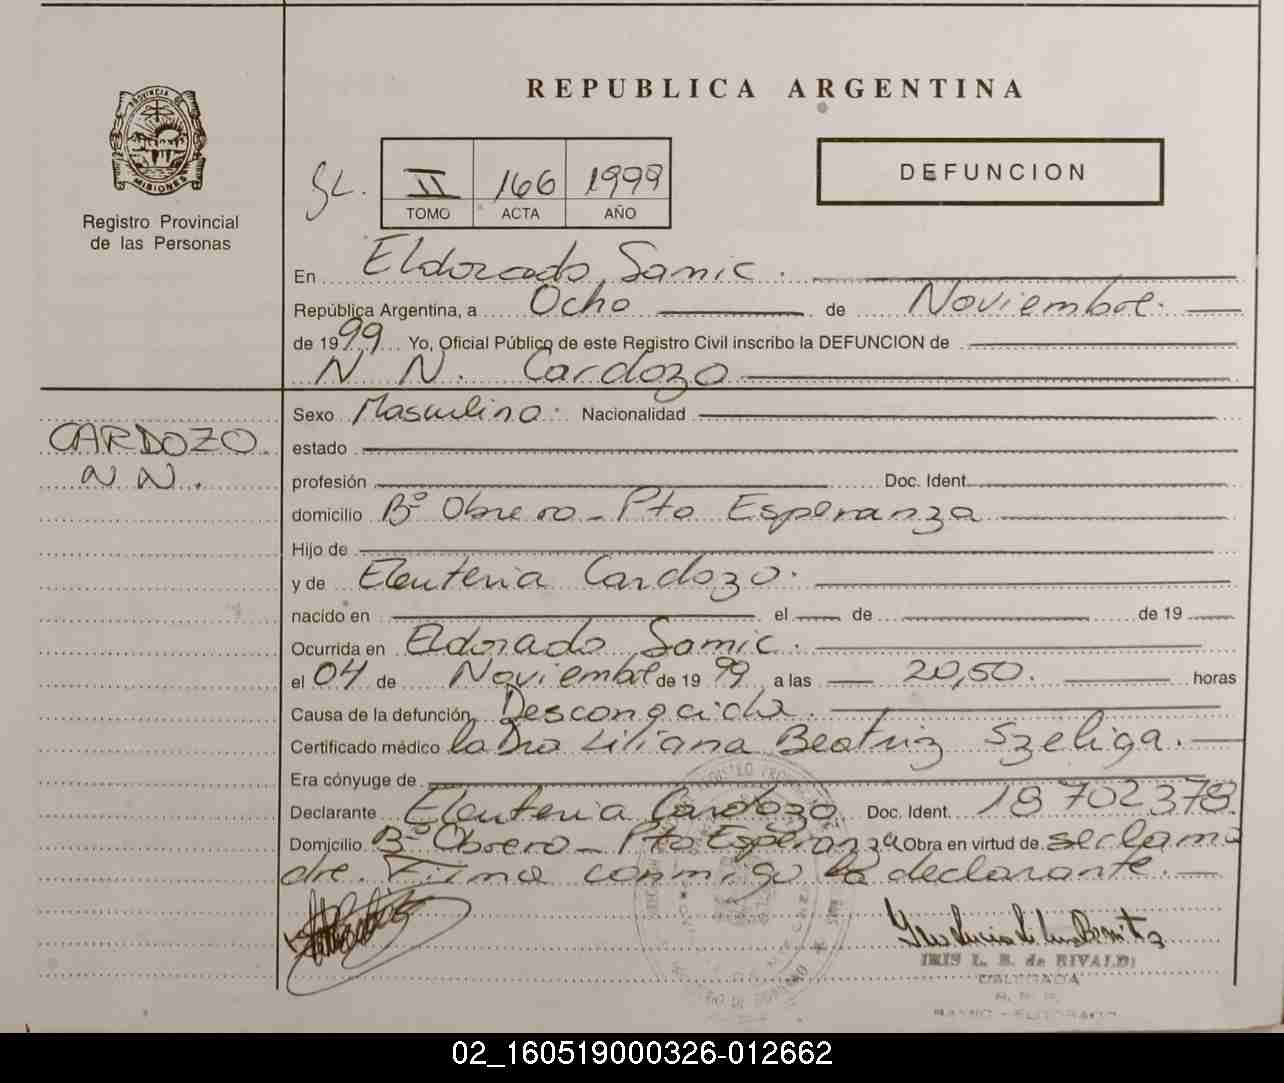 REPUBLICA ARGENTINA
PROVINCIA DE
MISIONES
Registro Provincial
de las Personas
II 166 1999
TOMO ACTA AÑO
DEFUNCION
En Eldorado Samic.
República Argentina, a Ocho de Noviembre.
de 1999 Yo, Oficial Público de este Registro Civil inscribo la DEFUNCION de
N N. Cardozo
CARDOZO
N N.
Sexo Masculino. Nacionalidad
estado
profesión Doc. Ident.
domicilio Bº Obrero - Pto Esperanza
Hijo de
y de Eleuteria Cardozo.
nacido en el de de 19
Ocurrida en Eldorado Samic.
el 04 de Noviembre de 1999 a las 20,50. horas
Causa de la defunción Desconocida.
Certificado médico la Dra Liliana Beatriz Szeliga.
Era cónyuge de
Declarante Eleuteria Cardozo Doc. Ident. 18702378
Domicilio Bº Obrero - Pto Esperanza Obra en virtud de ser la ma
dre. Firma conmigo la declarante.
IRIS L. B. de RIVALDI
DELEGADA
02_160519000326-012662